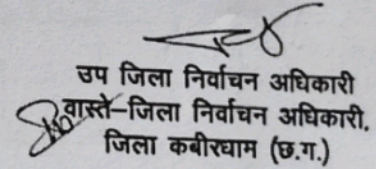 उप जिला निर्वाचन अधिकारी
वास्ते-जिला निर्वाचन अधिकारी,
जिला कबीरधाम (छ.ग.)